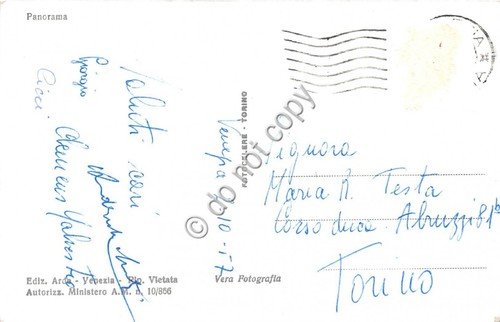 Panorama
Saluti cari
Giorgio
Cicci
Venezia
10 - 57
FOTOCELERE - TORINO
do not copy
Signora
Maria R. Testa
Corso duca Abruzzi 81 b
Torino
Ediz. Arda - Venezia - Rip. Vietata
Autorizz. Ministero A.M. n. 10/856
Vera Fotografia